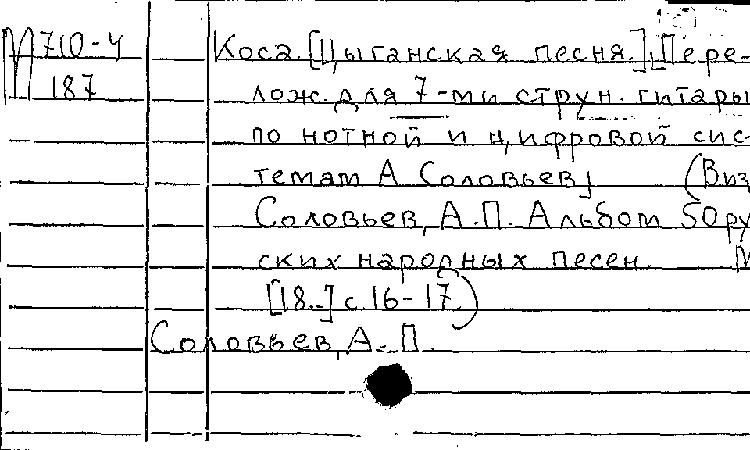 М 710-4
187
Коса. [Цыганская песня.], [Пере-
лож. для 7-ми струн. гитары
по нотной и цифровой сис-
темам А Соловьев]
(Виз
Соловьев, А.П. Альбом 50 ру
ских народных песен. М
[18..] с. 16-17.)
Соловьев, А. П.